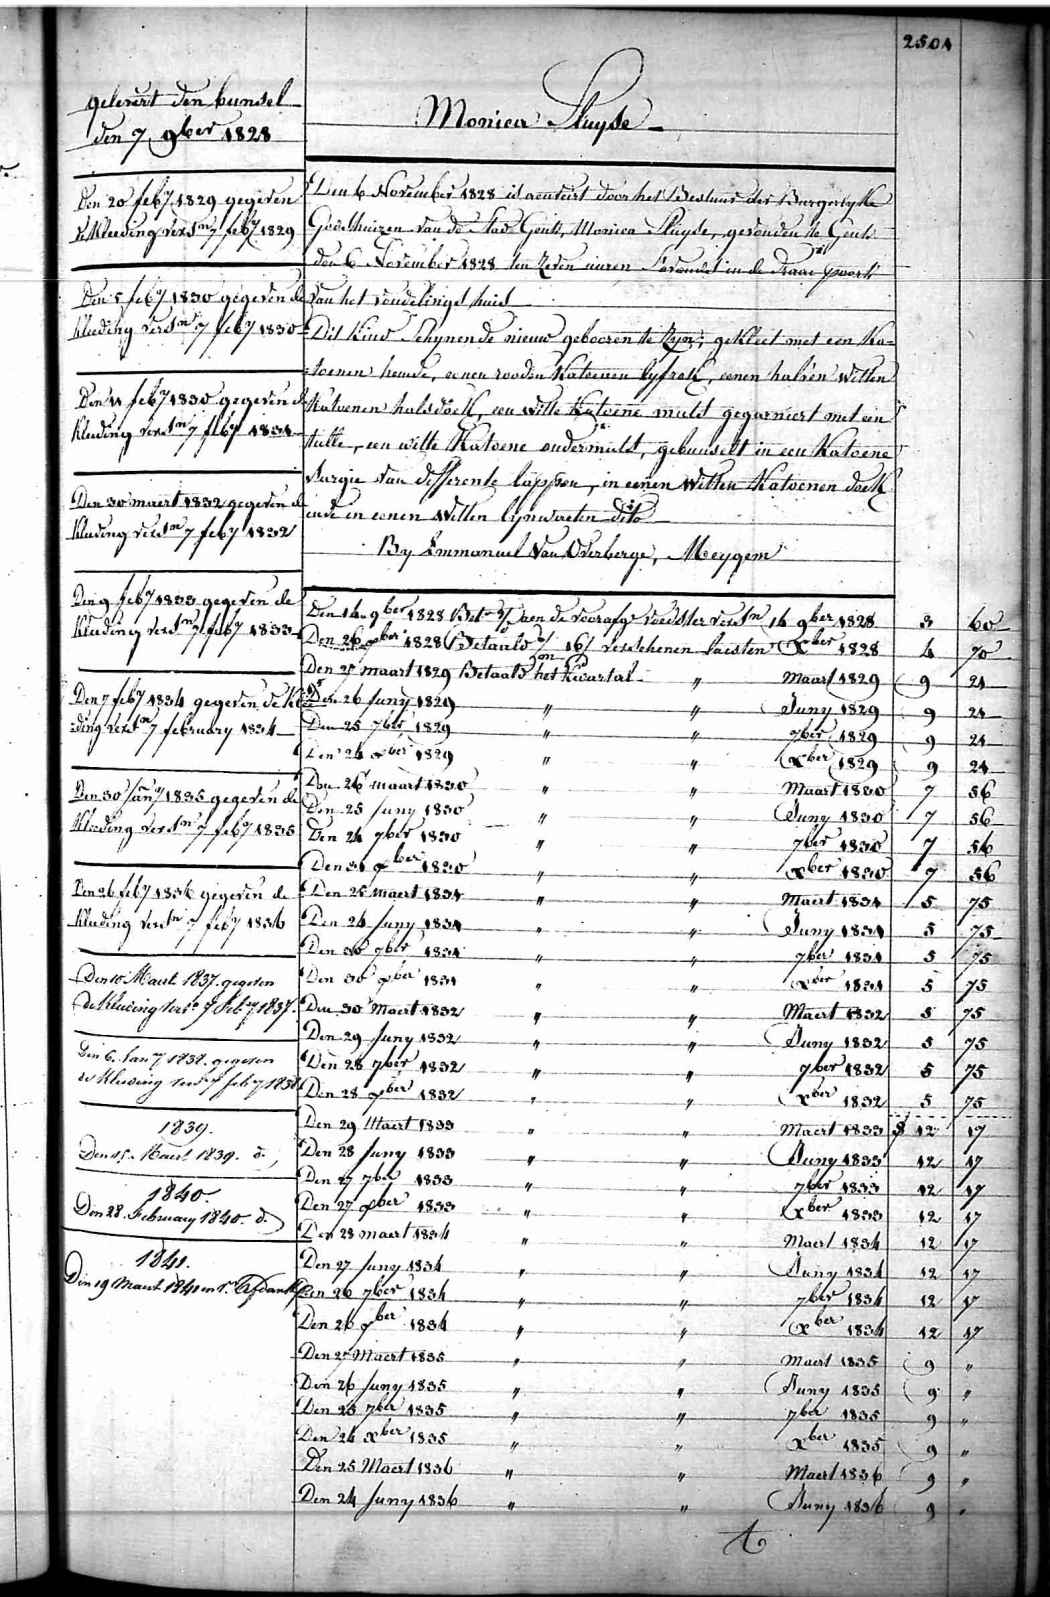 2501
Monica Sluyse
gelevert den bunsel
den 7 9ber 1828
Den 20 feb7 1829 gegeven
de Kleeding versn 7 feb7 1829
Den 5 feb7 1830 gegeven de
Kleeding versn 7 feb7 1830
Den 11 feb7 1830 gegeven de
Kleeding versn 7 feb7 1831
Den 30 maert 1832 gegeven de
Kleeding versn 7 feb7 1832
Den 9 feb7 1833 gegeven de
Kleeding versn 7 feb7 1833
Den 7 feb7 1834 gegeven de Klee
ding versn 7 february 1834
Den 30 Jan7 1835 gegeven de
Kleeding versn 7 feb7 1835
Den 26 feb7 1836 gegeven de
Kleeding versn 7 feb7 1836
Den 10 Maert 1837 gegeven
de Kleeding versn 7 Feb7 1837.
Den 6 Jan7 1838. gegeven
de Kleeding versn 7 feb7 1838
1839.
Den 15 Maert 1839. d.
1840.
Den 28. February 1840. d.
1841.
Den 19 Maert 1841 Afdank
Den 6 November 1828 is aenveirt door het Bestuur der Burgerlyke
Godshuizen van de Stad Gend, Monica Sluyse, gevonden te Gend
den 6 November 1828 ten zeven uuren s'avonds in de Draai
van het vondelingshuis
Dit Kind Schynende nieuw gebooren te Zyn, gekleet met een Ka-
toenen hemde, eenen rooden Katoenen lyfrok, eenen halven witten
Katoenen halsdoek, een witte Katoene muts gegarniert met een
tulle, een witte Katoene ondermuts, gebunselt in een Katoene
Sargie van differente lappen, in eenen witten Katoenen doek
ende in eenen Witten lynwaeten dito
By Emmanuel Van Overberge, Meygem
Den 14 9ber 1828 Bet aen de voorafge voedster versn 14 9ber 1828 3 60
Den 26 xber 1828 Betaald 16 verschenen laesten Xber 1828 4 70
Den 27 maart 1829 Betaald het Kwartal " Maart 1829 9 21
Den 26 Juny 1829 " " Juny 1829 9 21
Den 25 7ber 1829 " " 7ber 1829 9 21
Den 24 xber 1829 " " Xber 1829 9 21
Den 26 maart 1830 " " Maart 1830 7 56
Den 25 Juny 1830 " " Juny 1830 7 56
Den 24 7ber 1830 " " 7ber 1830 7 56
Den 31 xber 1830 " " Xber 1830 7 56
Den 25 Maert 1831 " " Maert 1831 5 75
Den 24 Juny 1831 " " Juny 1831 5 75
Den 30 7ber 1831 " " 7ber 1831 5 75
Den 30 xber 1831 " " xber 1831 5 75
Den 30 Maert 1832 " " Maert 1832 5 75
Den 29 Juny 1832 " " Juny 1832 5 75
Den 28 7ber 1832 " " 7ber 1832 5 75
Den 28 xber 1832 " " Xber 1832 5 75
Den 29 Maert 1833 " " Maert 1833 12 17
Den 28 Juny 1833 " " Juny 1833 12 17
Den 27 7ber 1833 " " 7ber 1833 12 17
Den 27 xber 1833 " " Xber 1833 12 17
Den 28 maert 1834 " " Maert 1834 12 17
Den 27 Juny 1834 " " Juny 1834 12 17
Den 26 7ber 1834 " " 7ber 1834 12 17
Den 26 xber 1834 " " Xber 1834 12 17
Den 27 Maert 1835 " " Maert 1835 9 "
Den 26 Juny 1835 " " Juny 1835 9 "
Den 25 7ber 1835 " " 7ber 1835 9 "
Den 24 xber 1835 " " Xber 1835 9 "
Den 25 Maert 1836 " " Maert 1836 9 "
Den 24 Juny 1836 " " Juny 1836 9 "